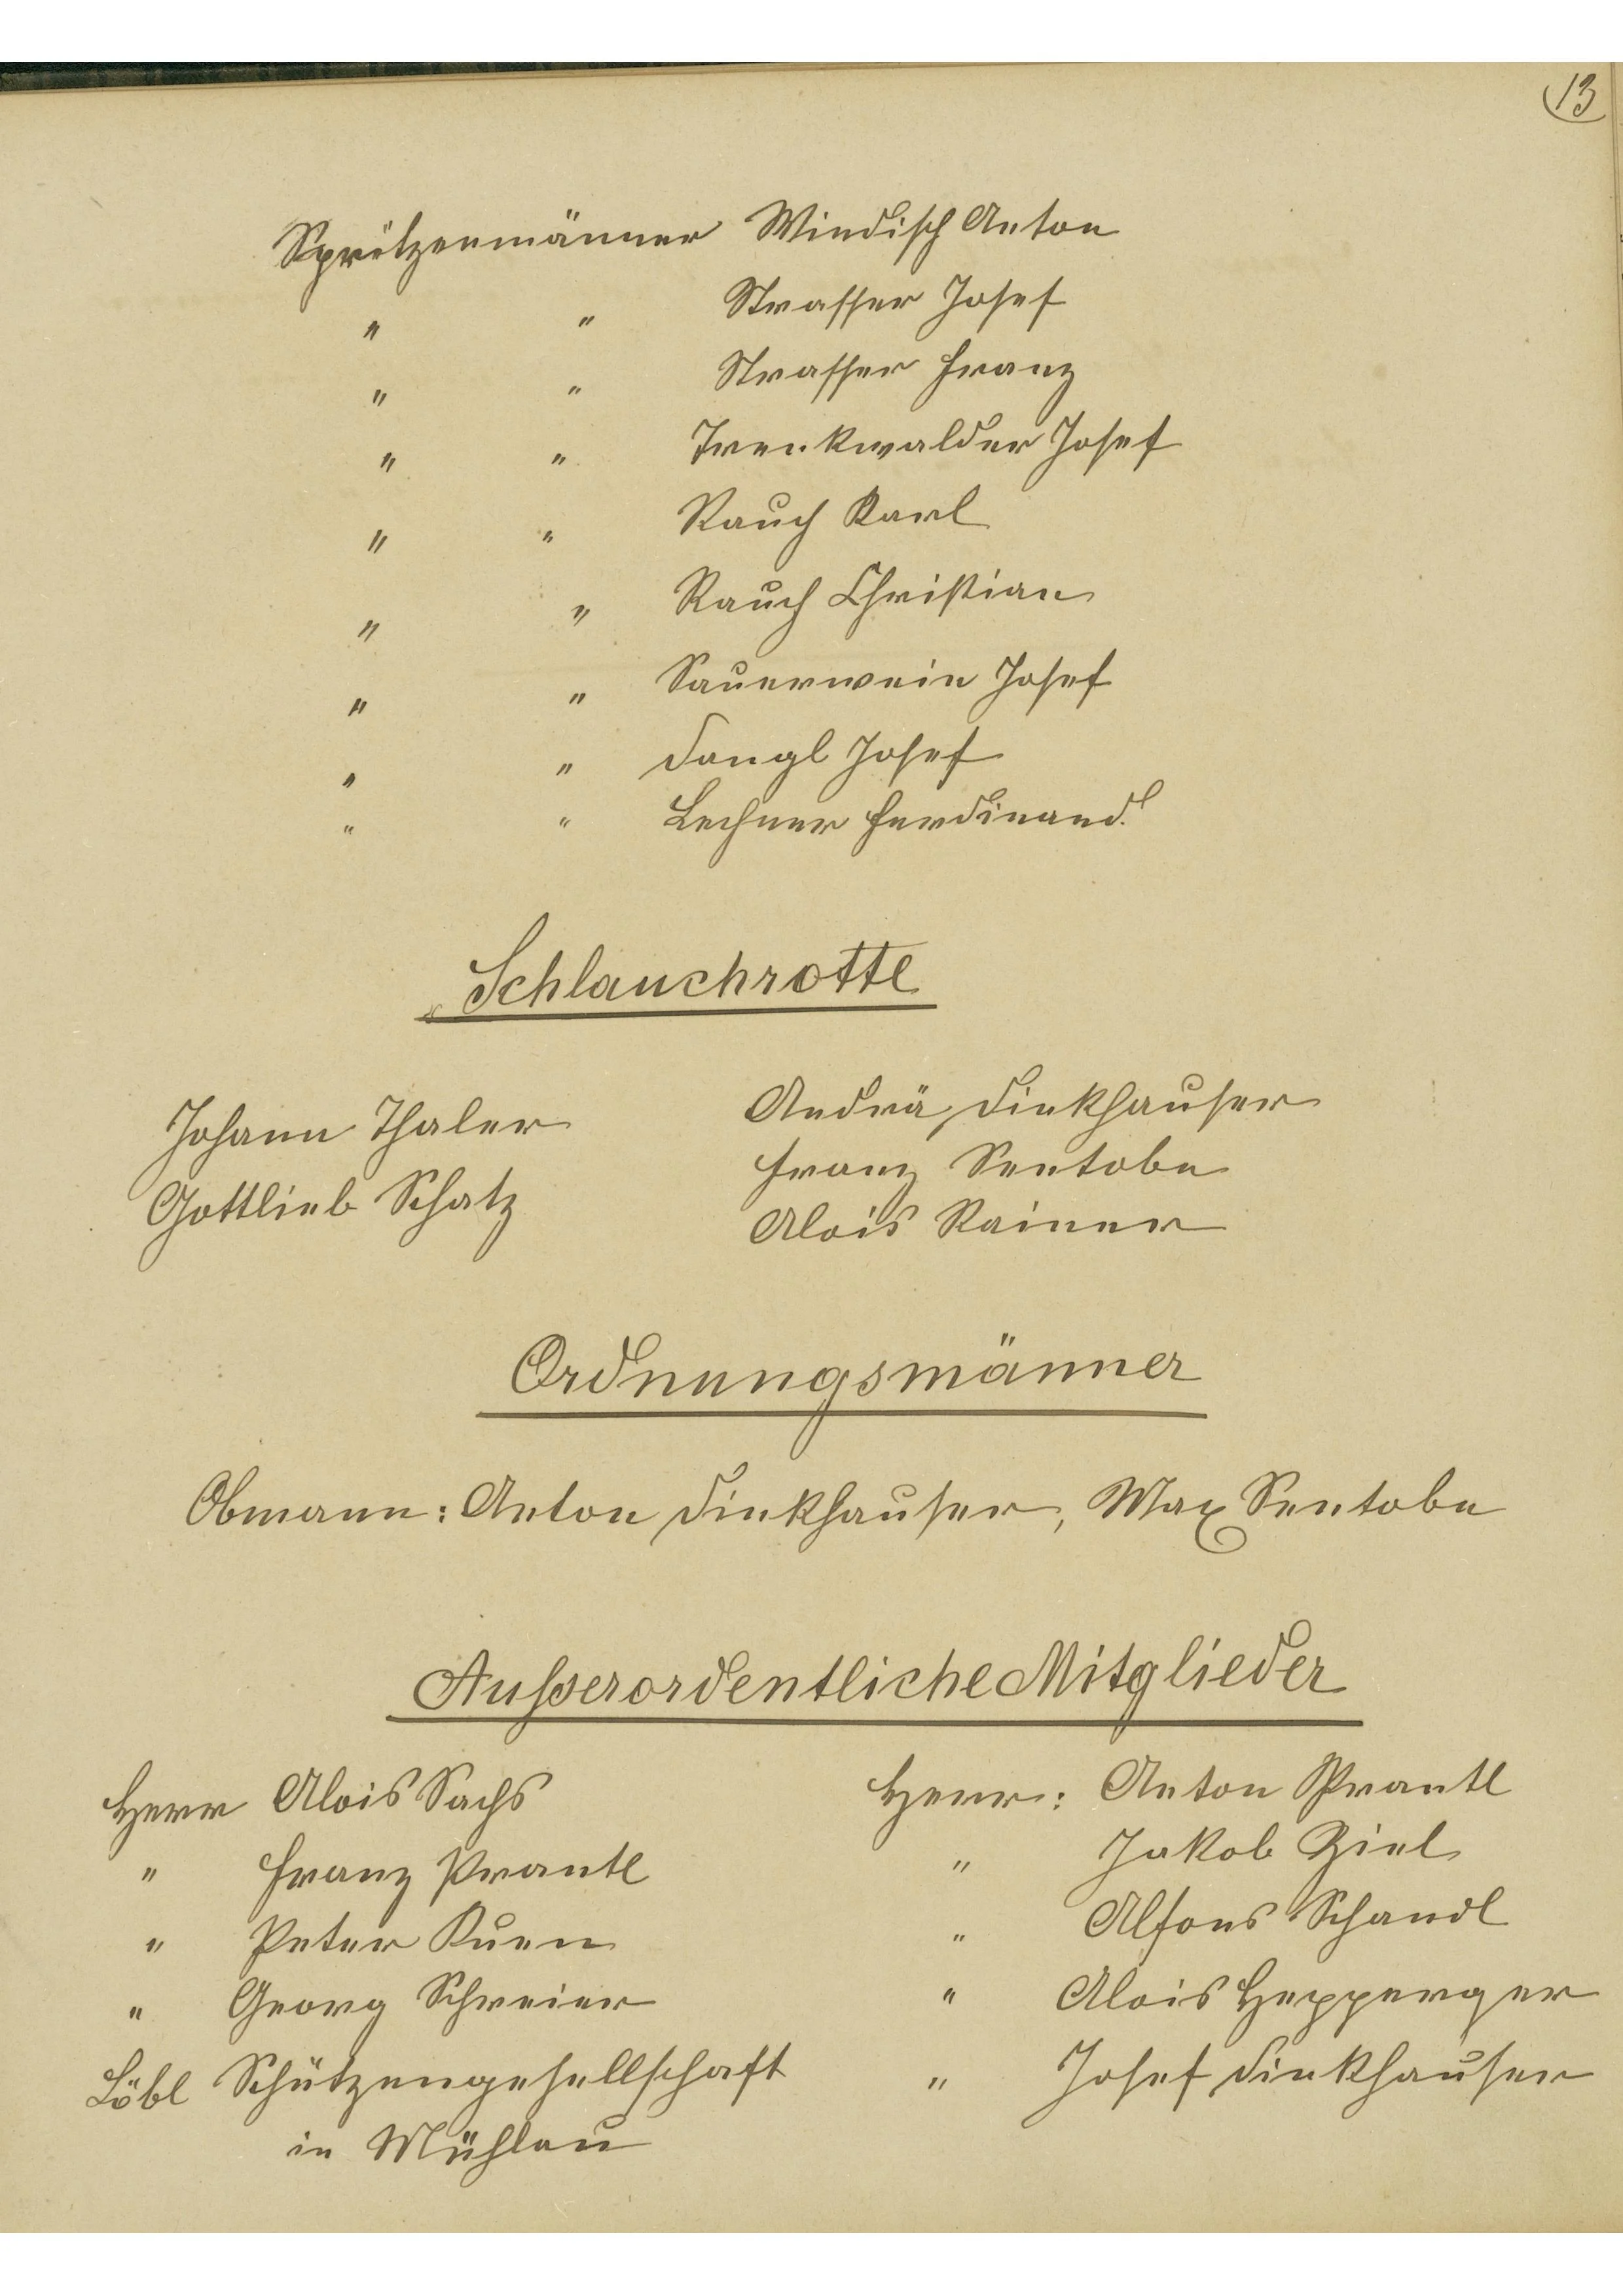 13
Spritzenmänner Windisch Anton
" " Strasser Josef
" " Strasser Franz
" " Trenkwalder Josef
" " Rauch Karl
" " Rauch Christian
" " Sauerwein Josef
" " Dangl Josef
" " Lechner Ferdinand.
Schlauchrotte
Johann Thaler
Gottlieb Schatz
Andrä Dinkhauser
Franz Sentobe
Alois Rainer
Ordnungsmänner
Obmann: Anton Dinkhauser, Max Sentobe
Außerordentliche Mitglieder
Herr Alois Sachs
" Franz Prantl
" Peter Kuen
" Georg Schreier
Löbl Schützengesellschaft
in Mühlau
Herr: Anton Prantl
" Jakob Ziel
" Alfons Schandl
" Alois Hepperger
" Josef Dinkhauser